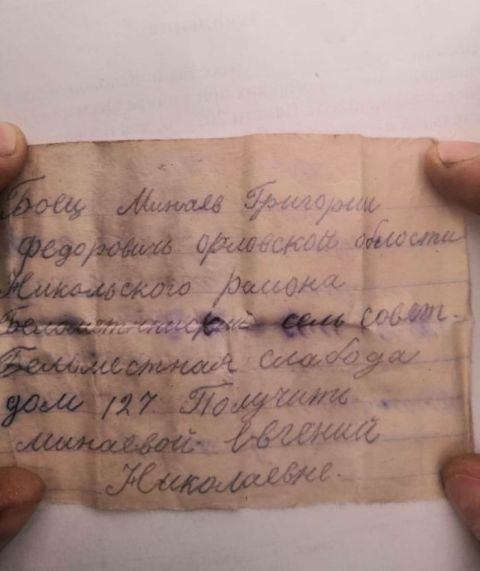 Боец Минаев Григории
Федоровичь орловской области
Никольского района
сель совет.
Бельместная слабода
дом 127 Получить
минаевой Евгений
Николаевне.